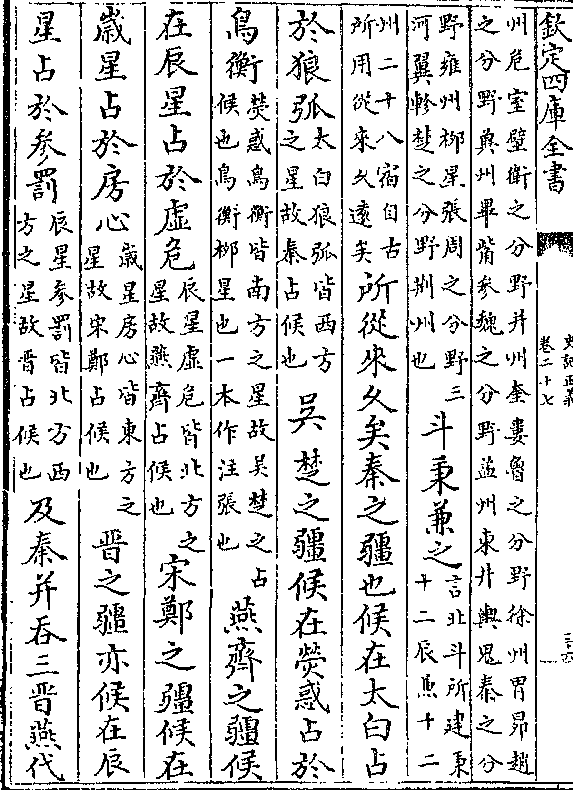 欽定四庫全書
史記正義
卷二十七
州危室壁衛之分野并州奎婁魯之分野徐州胃昴趙
之分野冀州畢觜參魏之分野益州東井輿鬼秦之分
野雍州柳星張周之分野三
河翼軫楚之分野荆州也
斗秉兼之
言北斗所建秉
十二辰馬十二
州二十八宿自古
所用從來久遠矣
所從來久矣秦之疆也候在太白占
於狼弧
太白狼弧皆西方
之星故秦占候也
吳楚之疆候在熒惑占於
鳥衡
熒惑鳥衡皆南方之星故吳楚之占
候也鳥衡柳星也一本作注張也
燕齊之疆候
在辰星占於虛危
辰星虛危皆北方之
星故燕齊占候也
宋鄭之疆候在
歳星占於房心
歳星房心皆東方之
星故宋鄭占候也
晋之疆亦候在辰
星占於參罰
辰星參罰皆北方西
方之星故晋占候也
及秦并吞三晋燕代